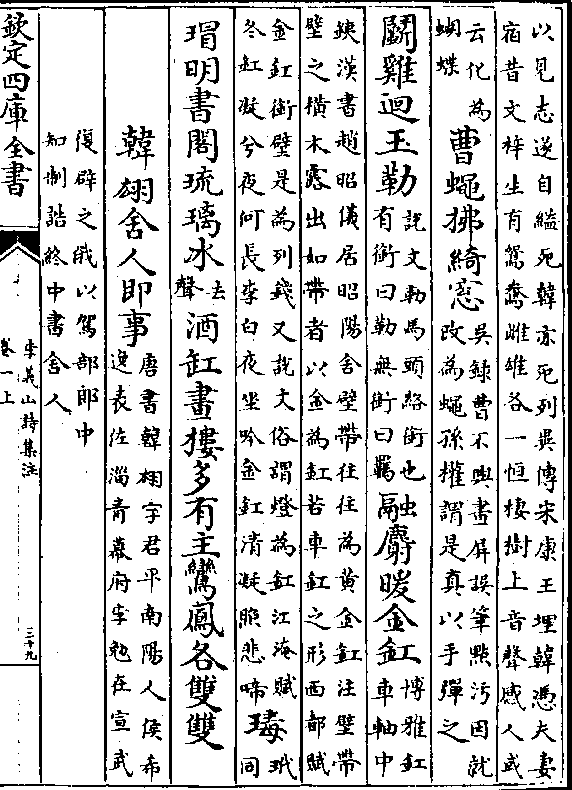 以見志遂自縊死韓亦死列異傳宋康王埋韓憑夫妻
宿昔文梓生有鴛鴦雌雄各一恒棲樹上音聲感人或
云化為
蝴蝶
曹蠅拂綺窓
吳錄曹不興畫屏誤筆點污因就
改為蠅孫權謂是真以手彈之
鬬雞迴玉勒
說文勒馬頭絡銜也
有銜曰勒無銜曰羈
融麝暖金釭
博雅釭
車軸中
鐵漢書趙昭儀居昭陽舍壁帶往往為黃金釭注壁帶
壁之横木露出如帶者以金為釭若車釭之形西都賦
金釭銜璧是為列錢又說文俗謂燈為釭江淹賦
冬釭凝兮夜何長李白夜坐吟金釭清凝照悲啼
瑇
玳
同
瑁明書閣琉璃冰
去
聲
酒缸畫樓多有主鸞鳳各雙雙
韓翃舍人即事
唐書韓翃字君平南陽人侯希
逸表佐淄青幕府李勉在宣武
復辟之俄以駕部郎中
知制誥終中書舍人
欽定四庫全書
李義山詩集注
卷一上
三十九